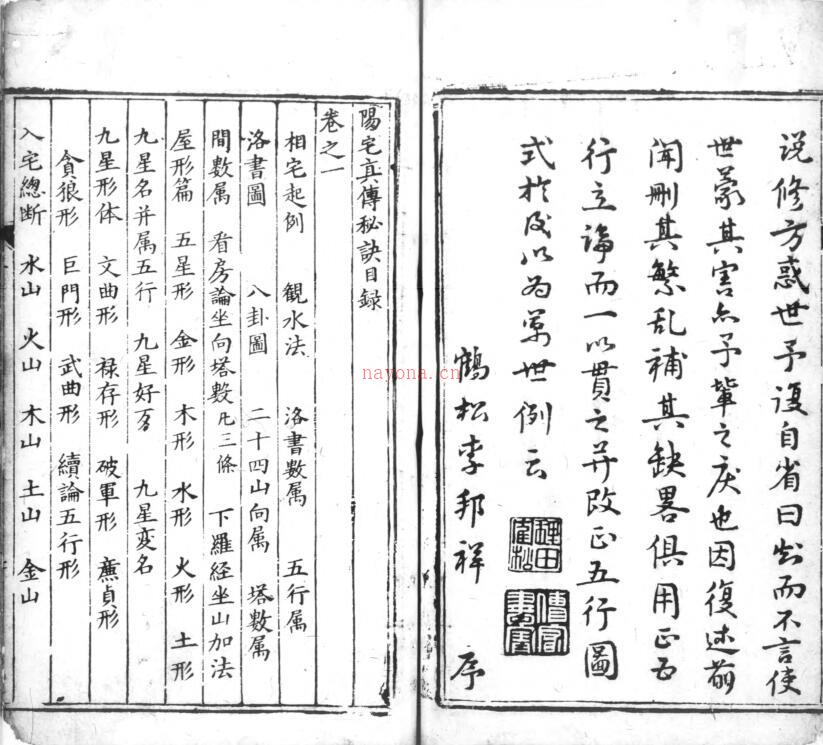 说修方惑世予復自省曰知而不言使
世蒙其害亦予輩之戾也因復述前
闻删其繁乱補其缺畧俱用正五
行立論而一以貫之并改正五行圖
式於后以为萬世例云
鶴松李邦祥 序
陽宅真傳秘訣目録
卷之一
相宅起例 観水法 洛書數属 五行属
洛書圖 八卦圖 二十四山向属 塔數属
間數属 看房論坐向塔數凡三條 下羅経坐山加法
屋形篇 五星形 金形 木形 水形 火形 土形
九星名并属五行 九星好歹 九星变名
九星形体 文曲形 禄存形 破軍形 廉貞形
貪狼形 巨門形 武曲形 續論五行形
入宅總断 水山 火山 木山 土山 金山
nayona.cn